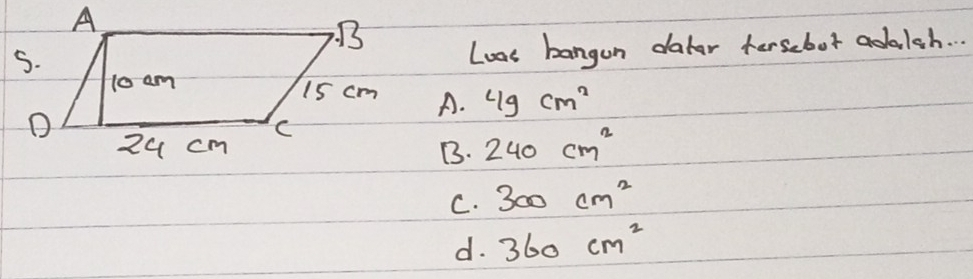 A
B
5.
10 cm
15 cm
D
C
24 cm
Luas bangun datar tersebut adalah...
A. 49 cm²
B. 240 cm²
C. 300 cm²
d. 360 cm²